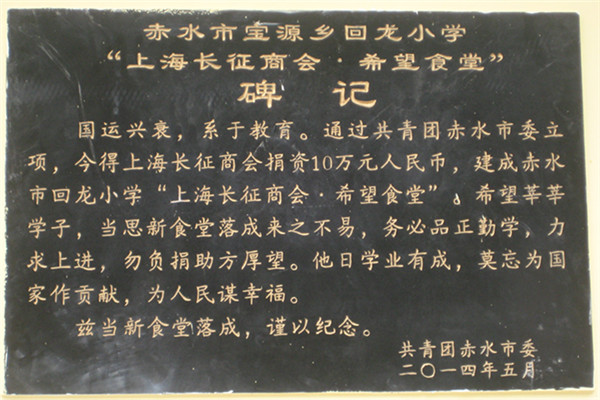 赤水市宝源乡回龙小学
“上海长征商会·希望食堂”
碑记
国运兴衰，系于教育。通过共青团赤水市委立
项，今得上海长征商会捐资10万元人民币，建成赤水
市回龙小学“上海长征商会·希望食堂”。希望莘莘
学子，当思新食堂落成来之不易，务必品正勤学，力
求上进，勿负捐助方厚望。他日学业有成，莫忘为国
家作贡献，为人民谋幸福。
兹当新食堂落成，谨以纪念。
共青团赤水市委
二〇一四年五月